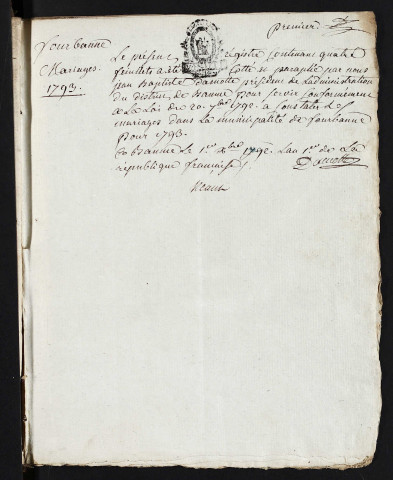 premier
fourbanne
Mariages
1793.
Le présent registre contenant quatre
feuillets a été cotté et paraphé par nous
jean baptiste Damotte président de L'administration
du district de baume pour servir conformément
a La Loi du 20. 7bre 1792. a constater Les
mariages dans La municipalité de fourbanne
pour 1793.
a baume le 1er Xbre 1792. L'an 1er de La
république française.
Damotte